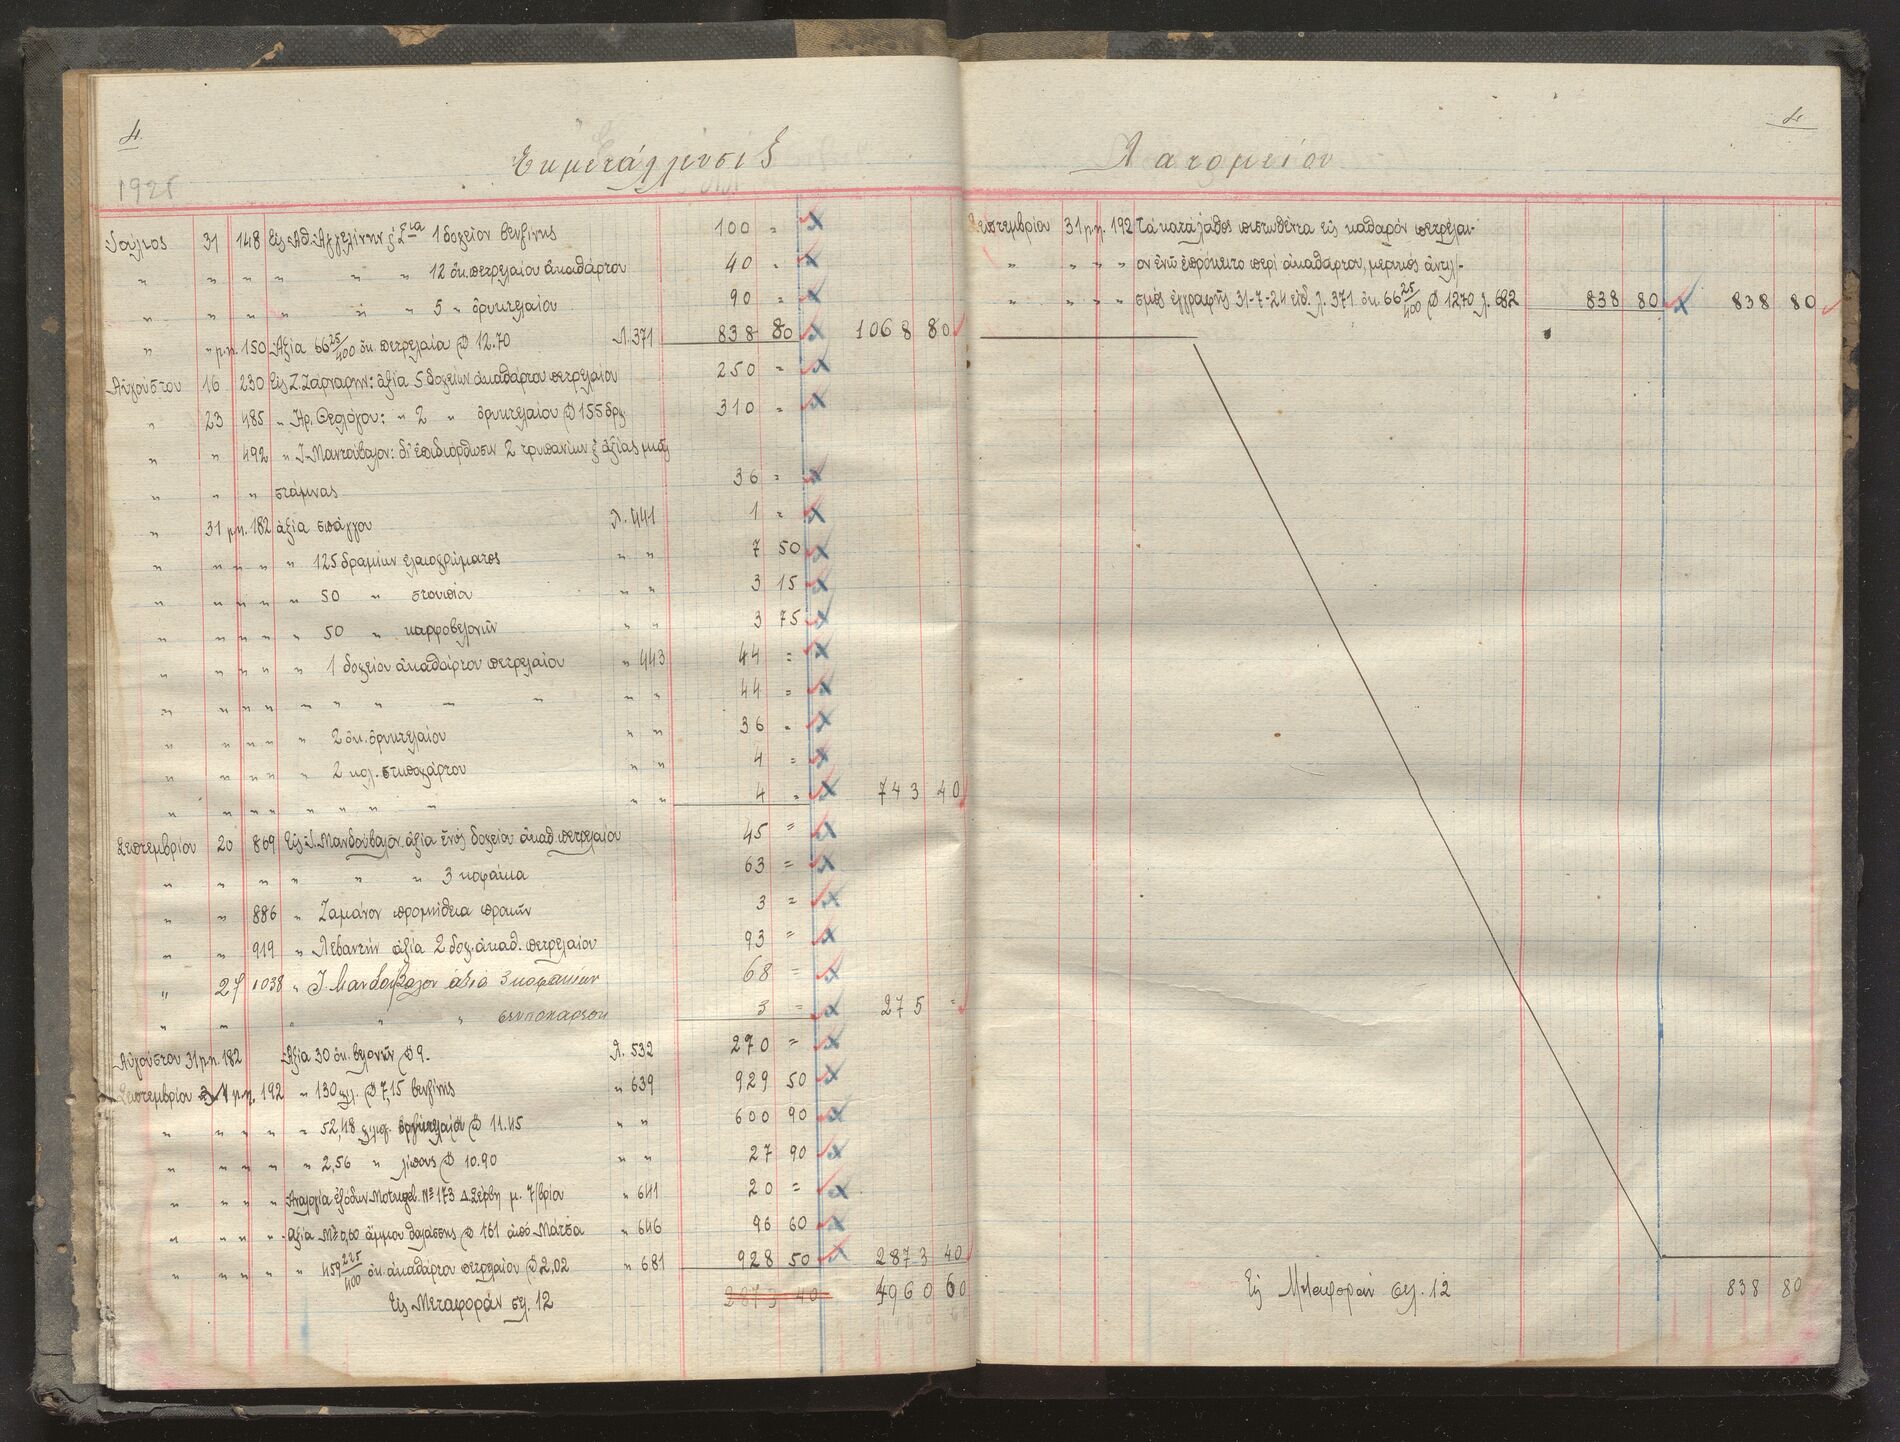 4.
Εκμετάλλευσις
1925
Ιούλιος 31 148 Εις Αθ. Αγγελίνην & Σια 1 δοχείον βενζίνης 100 =
" " " " " " 12 οκ. πετρελαίου ακαθάρτου 40 =
" " " " " " 5 " ορυκτελαίου 90 =
" " μη. 150 Αξία 66 25/400 οκ. πετρελαία @ 12.70 Λ. 371 838 80 1068 80
Αυγούστου 16 230 Εις Ζ. : αξία 5 δοχείων ακαθάρτου πετρελαίου 250 =
" 23 485 " Αρ. Θεολόγου: " 2 " ορυκτελαίου @ 155 δρχ 310 =
" " 492 " Ι. Μαντούβαλον: δι' επιδιόρθωσιν 2 τρυπανίων & αξίας μιάς
" " " στάμνας 36 =
" 31 μη. 182 αξία σπάγγου Λ. 441 1 =
" " " " " 125 δραμίων ελαιοχρώματος " " 7 50
" " " " " 50 " στουπίου " " 3 15
" " " " " 50 " καρφοβελονών " " 3 75
" " " " " 1 δοχείον ακαθάρτου πετρελαίου " 443 44 =
" " " " " " " " " " " 44 =
" " " " " 2 οκ. ορυκτελαίου " " 36 =
" " " " " 2 κολ. στυποχάρτου " " 4 =
" " " " " " " " " " 4 = 743 40
Σεπτεμβρίου 20 869 Εις Ι. Μανδούβαλον αξία ενός δοχείου ακαθ πετρελαίου 45 =
" " " " " " 3 κοφάκια 63 =
" " 886 " Ζαμάνον προμήθεια προκών 3 =
" " 919 " Λεβαντήν αξία 2 δοχ. ακαθ. πετρελαίου 93 =
" 27 1038 " Ι Μανδούβαλον αξία 3 κοφακίων 68 =
" " " " " στυποχάρτου 3 = 275 =
Αυγούστου 31 μη. 182 Αξία 30 οκ. βελονών @ 9. Λ. 532 270 =
Σεπτεμβρίου 31 μη. 192 " 130 χιλ. @ 7,15 βενζίνης " 639 929 50
" " " " " 52,48 χιλογ. ορυκτελαίου @ 11.45 " " 600 90
" " " " " 2,56 " λίπους @ 10.90 " " 27 90
" " " " Αναλογία εξόδων Nº 173 Δ. Σέρβη μ. 7/βρίου " 641 20 =
" " " " Αξία Μ³ 0,60 άμμου θαλάσσης @ 161 από Μάτσα " 646 96 60
" " " " " 459 225/400 οκ. ακαθάρτου πετρελαίου @ 2,02 " 681 928 50 2873 40
Εις Μεταφοράν σελ. 12 2873 40 4960 60
4
Λατομείου
Σεπτεμβρίου 31 μη. 192 Τα κατά λάθος πιστωθέντα εις καθαρόν πετρέλαι-
" " " " ον ενώ επρόκειτο περί ακαθάρτου, μερικός αντιλ-
" " " " σμός εγγραφής 31-7-24 είδ. λ. 371 οκ. 66 25/400 @ 1270 λ. 682 838 80 838 80
Εις Μεταφοράν σελ. 12 838 80